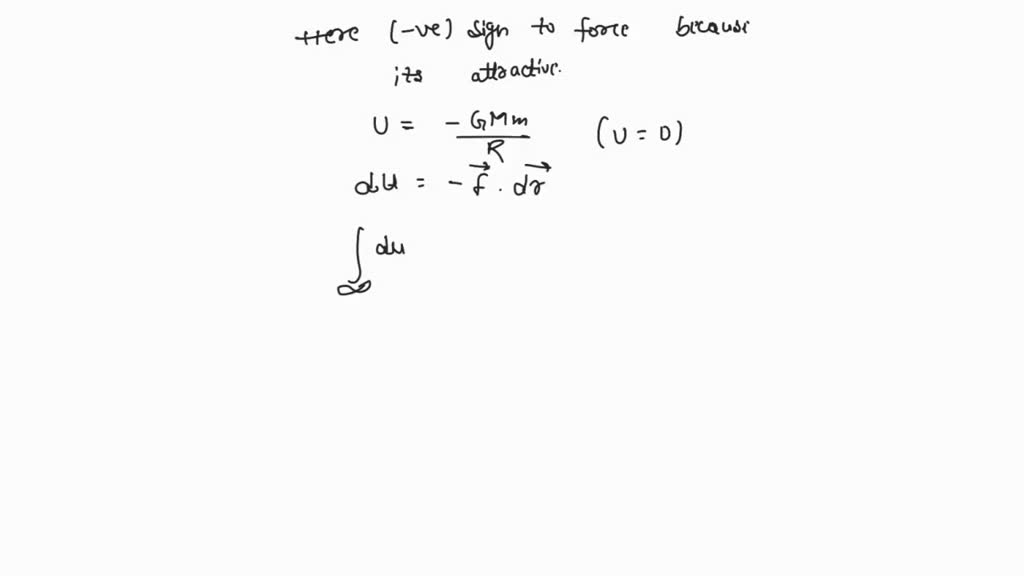 Here (-ve) sign to force because
its attractive.
U = -GMm/R (U = 0)
dU = -f⃗ . dr⃗
∫∞ du